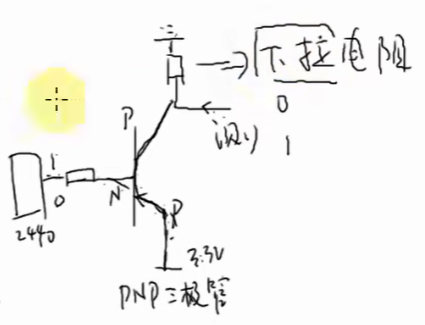 下接电阻
0
测) 1
P
1
0
N
P
2440
3.3V
PNP三极管